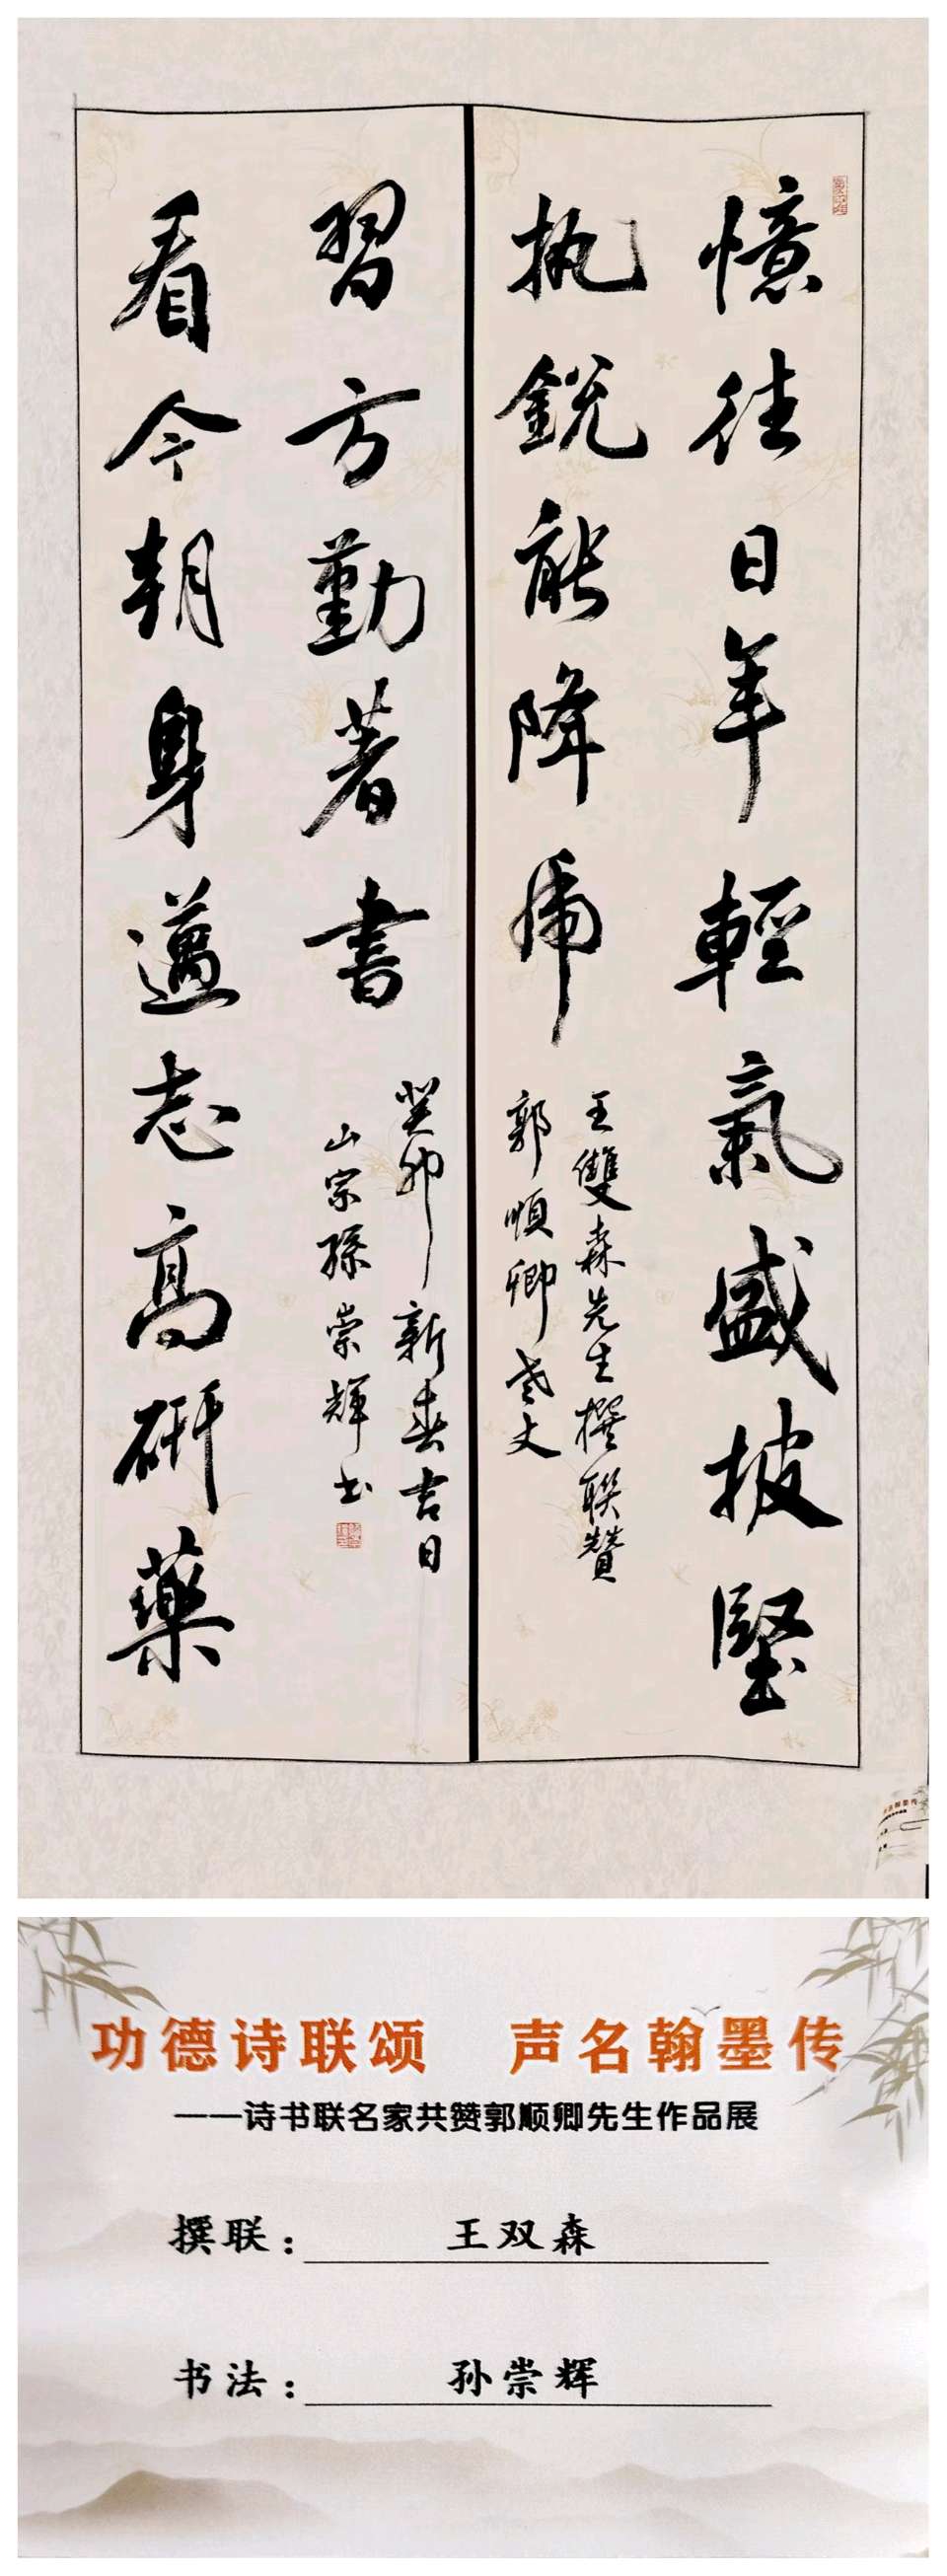 憶往日年輕氣盛披堅
执銳能降虎
王雙森先生撰聯贊
郭順卿老丈
看今朝身邁志高研藥
習方勤著書
癸卯新春吉日
山宗孫崇輝书
功德诗联颂 声名翰墨传
——诗书联名家共赞郭顺卿先生作品展
撰联：王双森
书法：孙崇辉